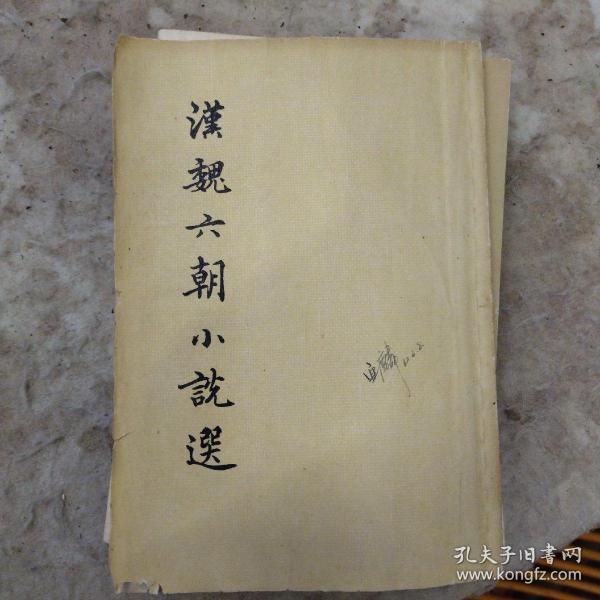 漢魏六朝小説選
孔夫子旧書网
www.kongfz.com